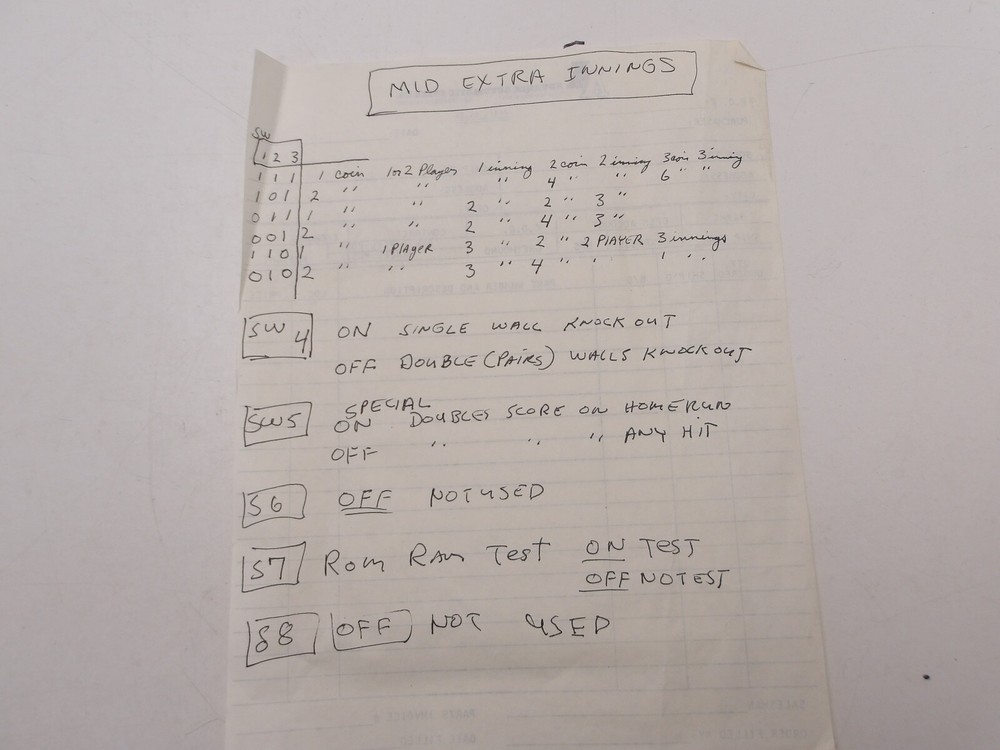 MID EXTRA INNINGS
SW
1 2 3
1 1 1 1 coin 1 or 2 Player 1 inning 2 coin 2 inning 3 coin 3 inning
1 0 1 2 " " " 4 " " 6 " "
0 1 1 1 " " 2 " 2 " 3 "
0 0 1 2 " " 2 " 4 " 3 "
1 1 0 1 " 1 Player 3 " 2 " 2 PLAYER 3 innings
0 1 0 2 " " 3 " 4 " " 1 " "
SW 4 ON SINGLE WALL KNOCK OUT
OFF DOUBLE (PAIRS) WALLS KNOCKOUT
SPECIAL
SW5 ON DOUBLES SCORE ON HOMERUN
OFF " " " ANY HIT
S6 OFF NOT USED
S7 Rom Ram Test ON TEST
OFF NO TEST
S8 OFF NOT USED